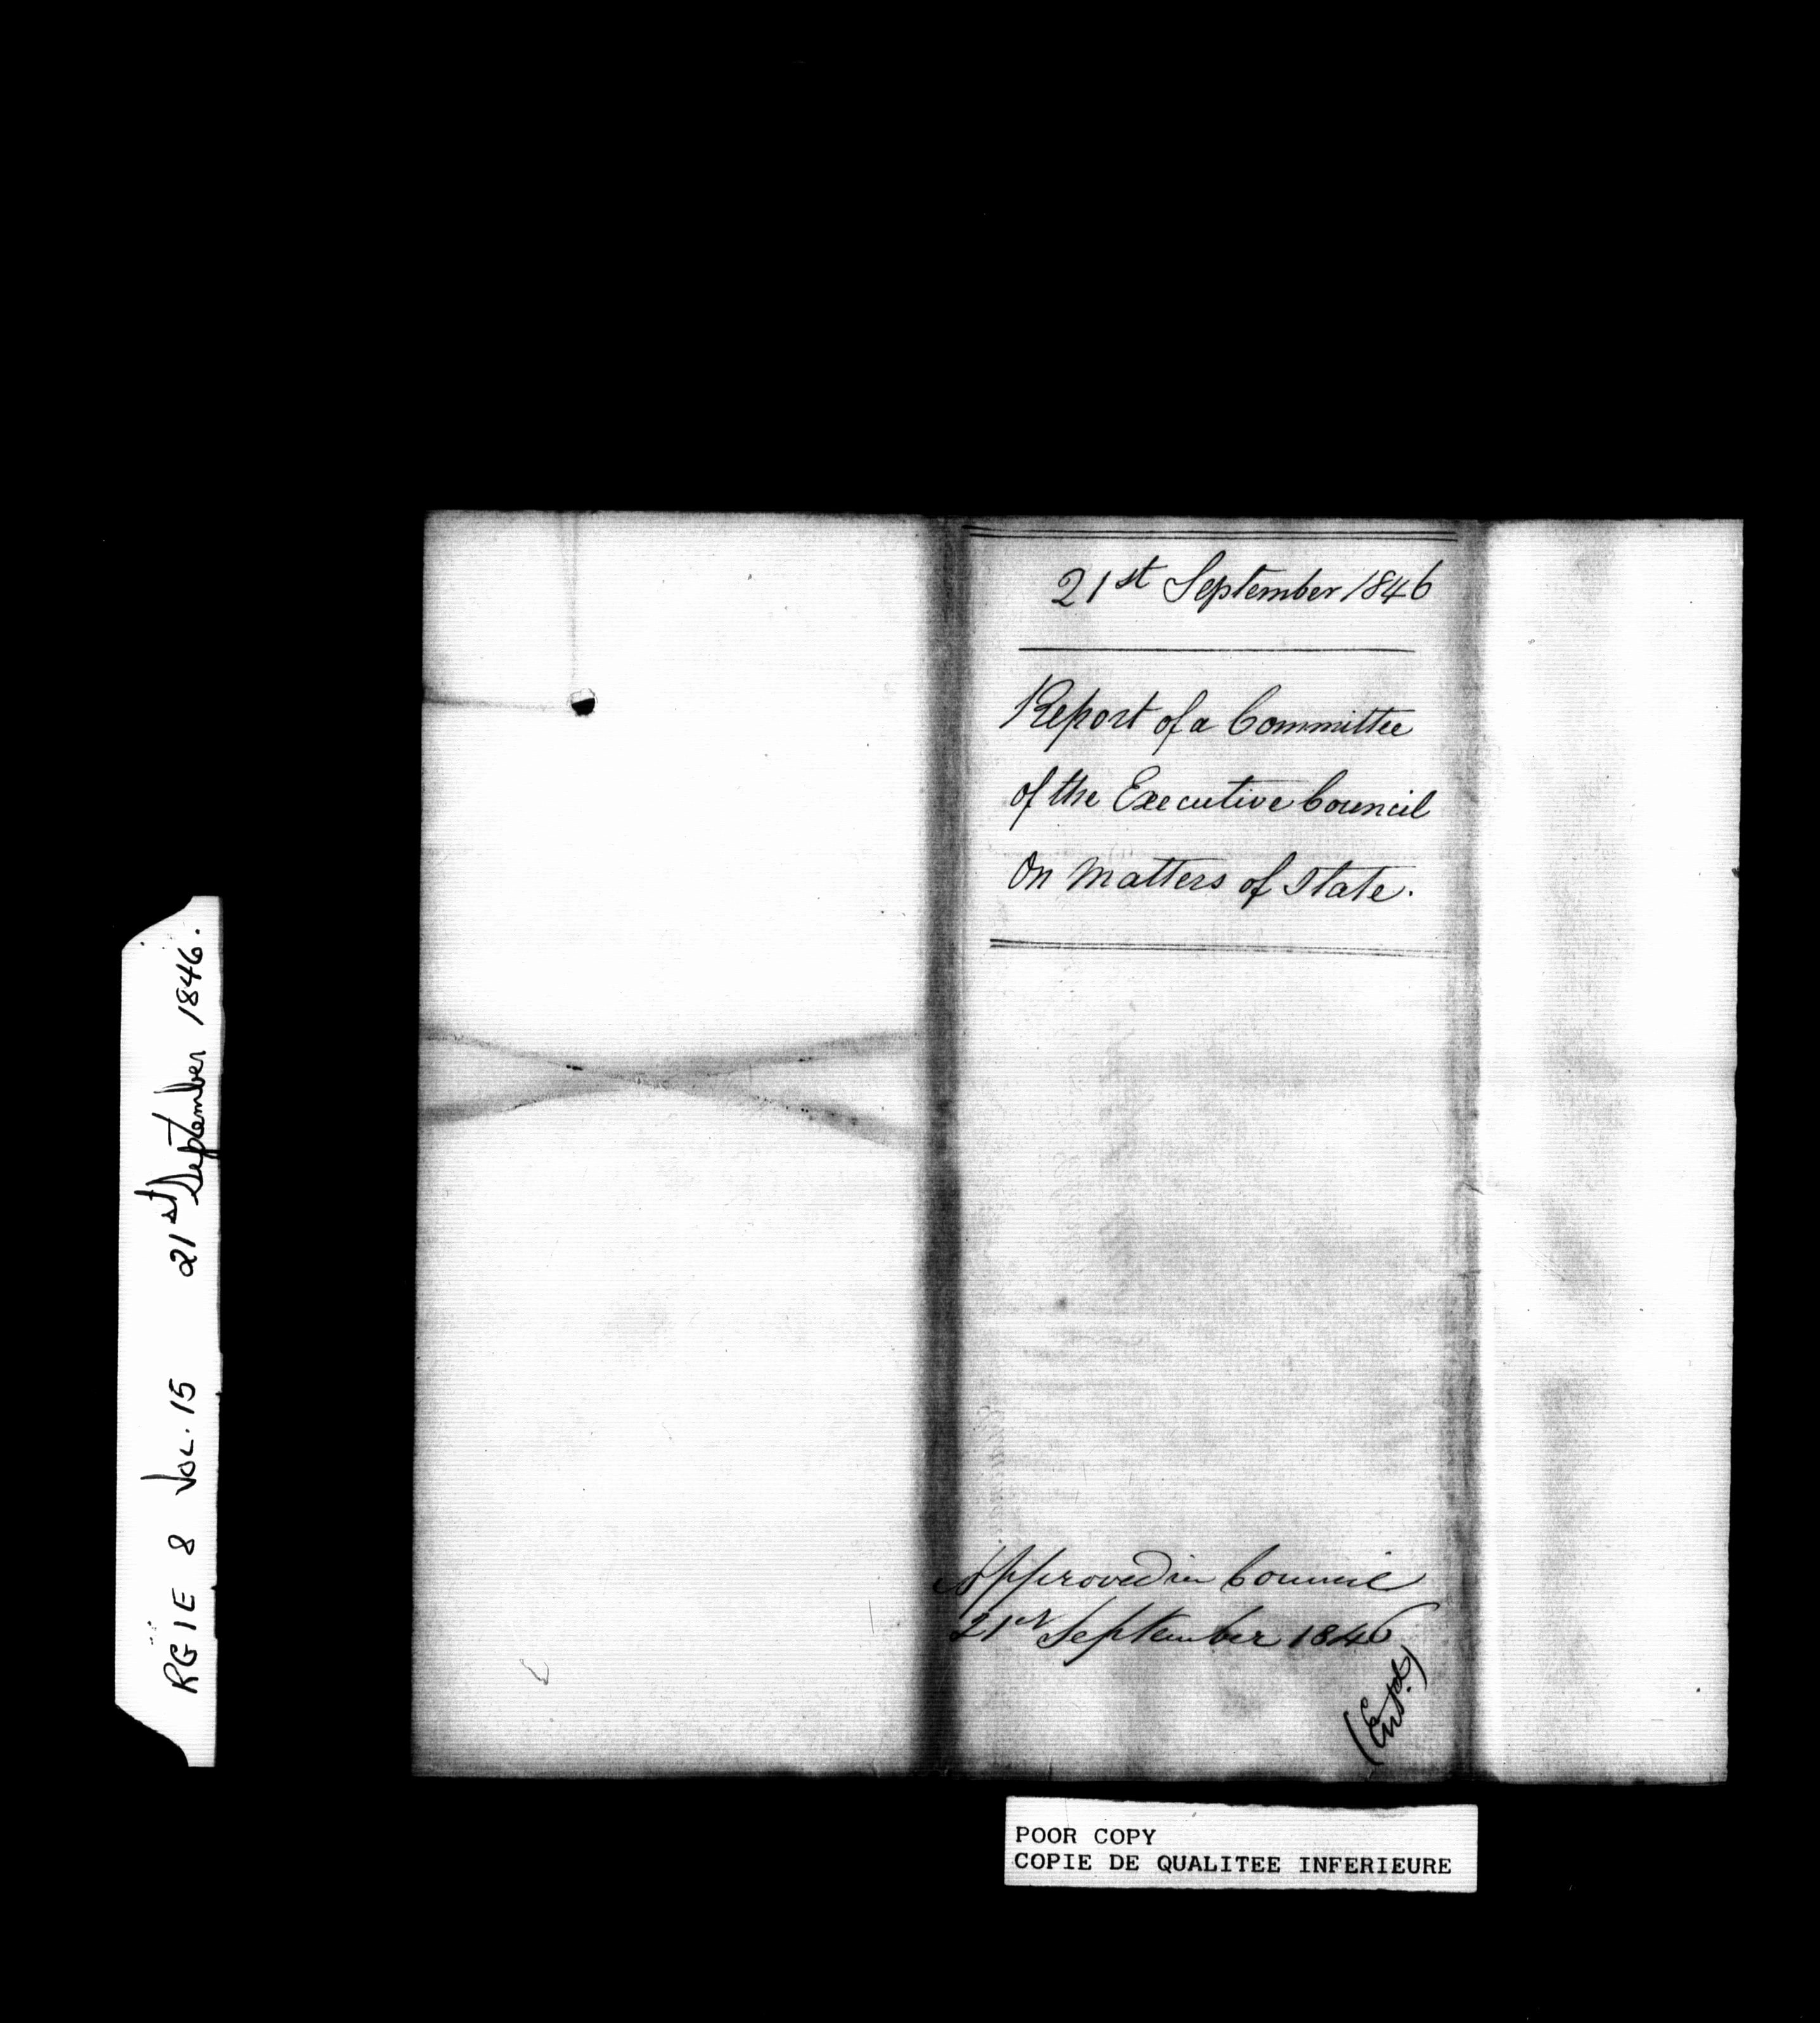 RG 1 E 8 VOL. 15 21st September 1846.
21st September 1846
Report of a Committee
of the Executive Council
On Matters of State.
Approved in Council
21st September 1846
(Entd.)
POOR COPY
COPIE DE QUALITEE INFERIEURE